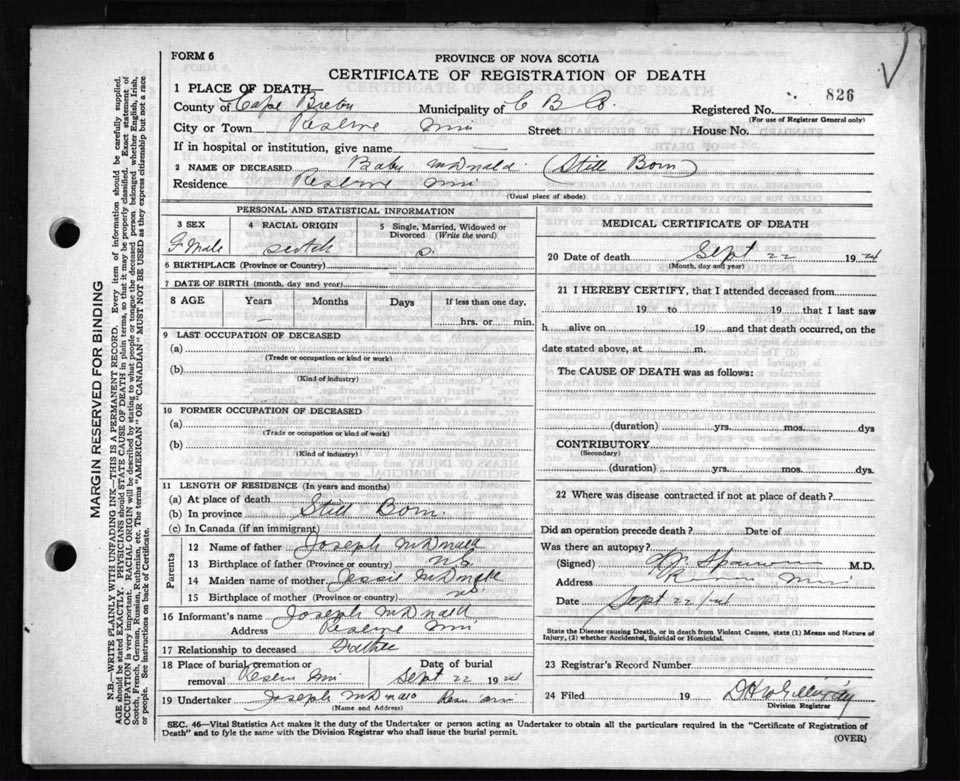 FORM 6
PROVINCE OF NOVA SCOTIA
CERTIFICATE OF REGISTRATION OF DEATH
826
1 PLACE OF DEATH—
County of Cape Breton Municipality of C B Registered No.
(For use of Registrar General only)
City or Town Reserve Street House No.
If in hospital or institution, give name
2 NAME OF DECEASED Baby McDonald (Still Born)
Residence Reserve
(Usual place of abode)
PERSONAL AND STATISTICAL INFORMATION
3 SEX 4 RACIAL ORIGIN 5 Single, Married, Widowed or Divorced (Write the word)
F Male scotch s.
6 BIRTHPLACE (Province or Country)
7 DATE OF BIRTH (month, day and year)
8 AGE Years Months Days If less than one day,
hrs. or min.
9 LAST OCCUPATION OF DECEASED
(a)
(Trade or occupation or kind or work)
(b)
(Kind of industry)
10 FORMER OCCUPATION OF DECEASED
(a)
(Trade or occupation or kind of work)
(b)
(Kind of industry)
11 LENGTH OF RESIDENCE (In years and months)
(a) At place of death
(b) In province Still Born
(c) In Canada (if an immigrant)
Parents
12 Name of father Joseph McDonald
13 Birthplace of father (Province or country) N.S.
14 Maiden name of mother Jessie McDonald
15 Birthplace of mother (Province or country) NS
16 Informant's name Joseph McDonald
Address Reserve
17 Relationship to deceased Father
18 Place of burial, cremation or removal Date of burial
Reserve Sept 22 19 24
19 Undertaker Joseph McDonald
(Name and Address)
MEDICAL CERTIFICATE OF DEATH
20 Date of death Sept 22 19 24
(Month, day and year)
21 I HEREBY CERTIFY, that I attended deceased from
19 to 19 that I last saw
h alive on 19 and that death occurred, on the
date stated above, at m.
The CAUSE OF DEATH was as follows:
(duration) yrs. mos. dys
CONTRIBUTORY
(Secondary)
(duration) yrs. mos. dys.
22 Where was disease contracted if not at place of death?
Did an operation precede death? Date of
Was there an autopsy?
(Signed) M.D.
Address
Date Sept 22/24
State the Disease causing Death, or in death from Violent Causes, state (1) Means and Nature of
Injury, (2) whether Accidental, Suicidal or Homicidal.
23 Registrar's Record Number
24 Filed 19
Division Registrar
SEC. 46—Vital Statistics Act makes it the duty of the Undertaker or person acting as Undertaker to obtain all the particulars required in the "Certificate of Registration of
Death" and to fyle the same with the Division Registrar who shall issue the burial permit.
(OVER)
MARGIN RESERVED FOR BINDING
N.B.—WRITE PLAINLY WITH UNFADING INK—THIS IS A PERMANENT RECORD. Every item of information should be carefully supplied.
AGE should be stated EXACTLY. PHYSICIANS should STATE CAUSE OF DEATH in plain terms, so that it may be properly classified. Exact statement of
OCCUPATION is very important. RACIAL ORIGIN will be described by stating to what people or tongue the deceased person belonged whether English, Irish,
Scotch, French, German, Russian, Ruthenian, etc. The terms "AMERICAN" OR "CANADIAN" MUST NOT BE USED as they express citizenship but not a race
or people. See instructions on back of Certificate.